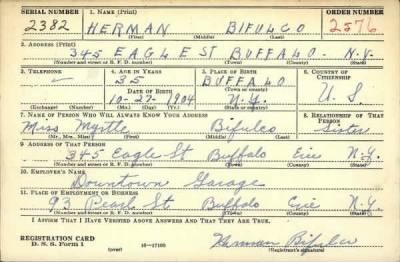 SERIAL NUMBER 1. NAME (Print) ORDER NUMBER
2382 HERMAN BIFULCO 2576
(First) (Middle) (Last)
2. ADDRESS (Print)
345 EAGLE ST BUFFALO - N.Y.
(Number and street or R. F. D. number) (Town) (County) (State)
3. TELEPHONE 4. AGE IN YEARS 5. PLACE OF BIRTH 6. COUNTRY OF CITIZENSHIP
— 35 BUFFALO
DATE OF BIRTH (Town or county)
10-27-1904 N.Y. U. S.
(Exchange) (Number) (Mo.) (Day) (Yr.) (State or country)
7. NAME OF PERSON WHO WILL ALWAYS KNOW YOUR ADDRESS 8. RELATIONSHIP OF THAT PERSON
Miss Myrtle Bifulco Sister
(Mr., Mrs., Miss) (First) (Middle) (Last)
9. ADDRESS OF THAT PERSON
345 Eagle St Buffalo Erie N.Y.
(Number and street or R. F. D. number) (Town) (County) (State)
10. EMPLOYER'S NAME
Downtown Garage
11. PLACE OF EMPLOYMENT OR BUSINESS
93 Pearl St Buffalo Erie N.Y.
(Number and street or R. F. D. number) (Town) (County) (State)
I AFFIRM THAT I HAVE VERIFIED ABOVE ANSWERS AND THAT THEY ARE TRUE.
REGISTRATION CARD
D. S. S. Form 1 (over) 16—17105 Herman Bifulco